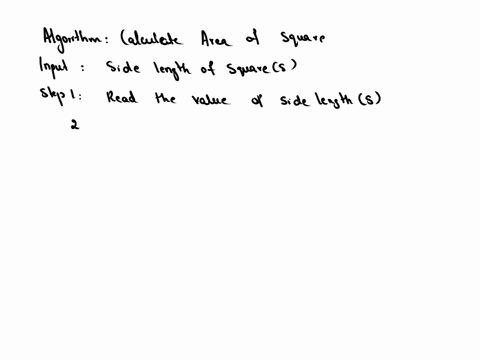 Algorithm: Calculate Area of Square
Input: Side length of Square (S)
Step 1: Read the value of side length (S)
2